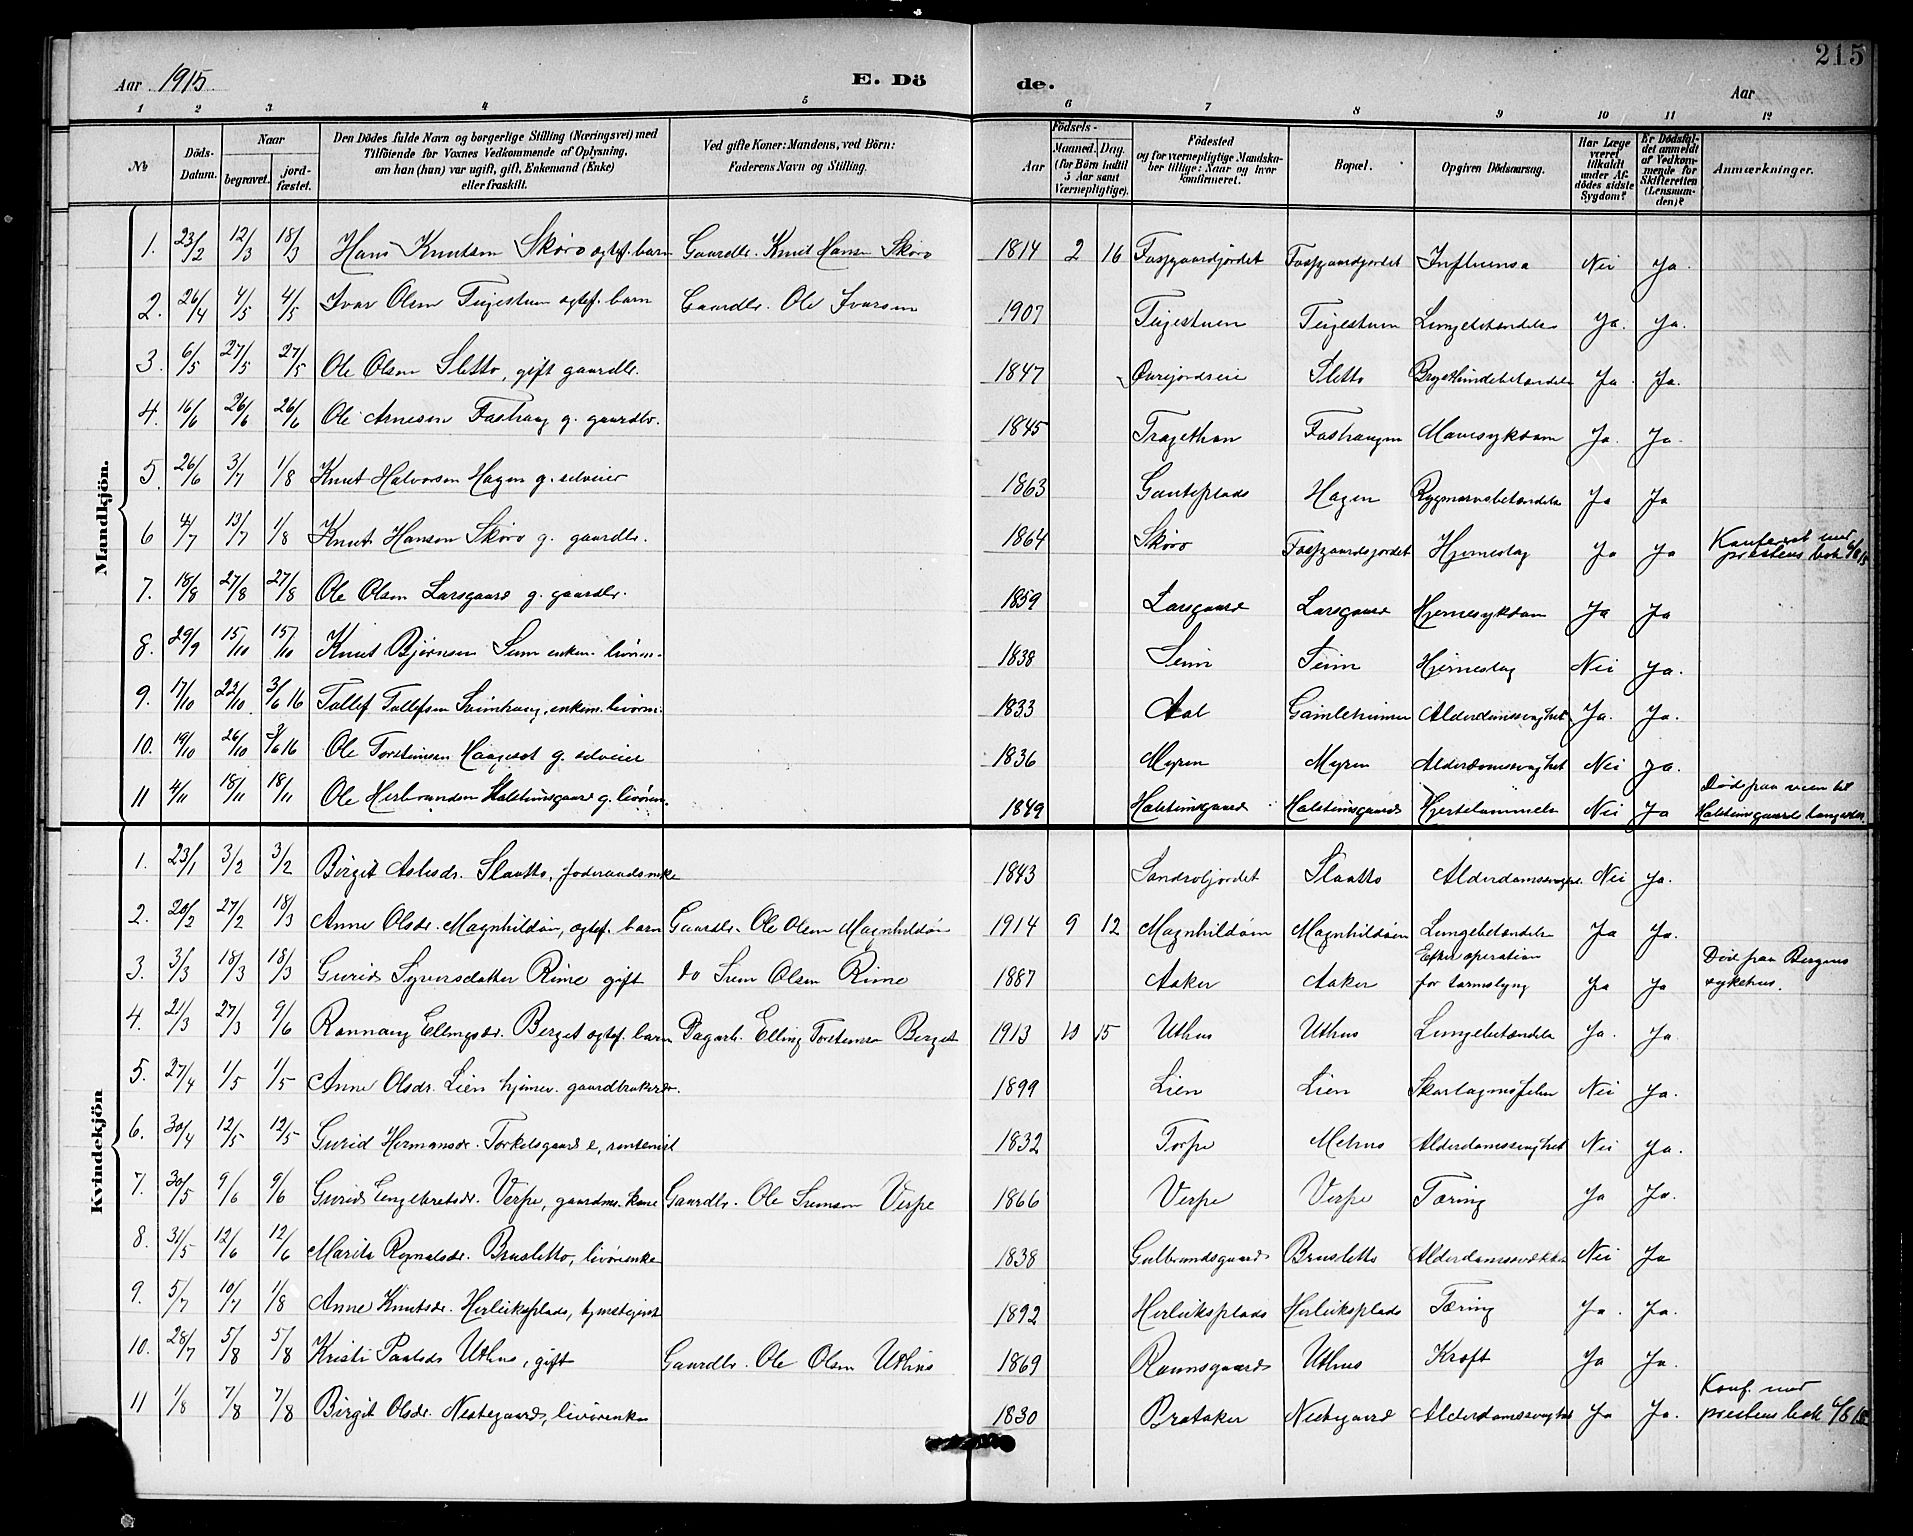 215
Aar 1915. E. Dö de. Aar
1 2 3 4 5 6 7 8 9 10 11 12
№ Döds-Datum. Naar begravet. jord-fæstet. Den Dödes fulde Navn og borgerlige Stilling (Næringsvei) med Tilföiende for Voxnes Vedkommende af Oplysning, om han (hun) var ugift, gift, Enkemand (Enke) eller fraskilt. Ved gifte Koner: Mandens, ved Börn: Faderens Navn og Stilling. Födsels- Aar Maaned. Dag. (for Börn indtil 5 Aar samt Værnepligtige). Födested og for værnepligtige Mandska-ber tillige: Naar og hvor konfirmeret. Bopæl. Opgiven Dödsaarsag. Har Læge været tilkaldt under Af-dödes sidste Sygdom? Er Dödsfal-det anmeldt af Vedkom-mende for Skifteretten (Lensman-den)? Anmærkninger.
Mandkjön.
1. 23/2 12/3 18/3 Hans Knutsen Skøro ogtef. barn Gaardbr. Knut Hansen Skøro 1814 2 16 Fospgaardjordet Fospgaardjordet Influensa Nei Ja.
2. 26/4 4/5 4/5 Ivar Olsen Teigestuen ogtef. barn Gaardbr. Ole Ivarsen 1907 Teigestuen Teigestuen Lungebetændelse Ja. Ja.
3. 6/5 27/5 27/5 Ole Olsen Sletto, gift gaardbr. 1847 Ourejordseie Sletto Brysthindebetændelse Ja. Ja.
4. 16/6 26/6 26/6 Ole Arnesen Foshaug g. gaardbr. 1845 Tragethon Foshaugen Mavesykdom Ja. Ja.
5. 26/6 3/7 1/8 Knut Halvorsen Hagen g. selveier 1863 Gauteplads Hagen Rygmarvsbetændelse Ja Ja
6 4/7 13/7 1/8 Knut Hansen Skøro g. gaardbr. 1864 Skøro Fospgaardsjordet Hjerneslag Ja Ja Konferert med prestens bok 6/8 15
7. 18/8 27/8 27/8 Ole Olsen Larsgaard g. gaardbr. 1859 Larsgaard Larsgaard Hjernesykdom Ja Ja
8. 29/9 15/10 15/10 Knut Bjørnsen Seim enkem. livørem. 1838 Seim Seim Hjerneslag Nei Ja.
9. 17/10 22/10 3/6 16 Tollef Tollefsen Sveinhaug, enkem. livørem. 1833 Aal Gamleheimen Alderdomssvaghet Ja. Ja.
10. 19/10 26/10 3/6 16 Ole Torsteinsen Haagaset g. selveier 1836 Myren Myren Alderdomssvaghet Nei Ja.
11 4/11 18/11 18/11 Ole Herbrandsen Halsteinsgaard g. livørem. 1849 Halsteinsgaard Halsteinsgaard Hjertelammelse Nei Ja Død paa veien til Halsteinsgaards langseter.
Kvindekjön
1. 23/1 3/2 3/2 Birgit Aslesdr. Slaatto, foderaadsenke 1843 Sandroljordet Slaatto Alderdomssvaghet. Nei Ja.
2. 20/2 27/2 18/3 Anne Olsdr. Magnhildøin, ogtef. barn Gaardbr. Ole Olsen Magnhildøin 1914 9 12 Magnhildøin Magnhildøin Lungebetændelse Ja Ja.
3. 3/3 18/3 18/3 Gurid Syversdatter Rime gift do Svein Olsen Rime 1887 Aaker Aaker Efter operation for tarmslyng Ja Ja Død paa Bergens sykehus.
4. 21/3 27/3 9/6 Rannaug Ellingsdr. Berget ogtef. barn Dagarb. Elling Torsteinsen Berget 1913 10 15 Uthus Uthus Lungebetændelse Ja. Ja.
5. 27/4 1/5 1/5 Anne Olsdr. Lien hjemev. gaardbrukerdr. 1899 Lien Lien Skarlagensfeber Nei Ja.
6. 30/4 12/5 12/5 Gurid Hermansdr. Torkelsgaard e, rentenist 1832 Torpe Mehus Alderdomssvaghet Nei Ja.
7. 30/5 9/6 9/6 Gurid Engebretsdr. Verpe, gaardm. kone Gaardbr. Ole Sveinson Verpe 1866 Verpe Verpe Tæring Ja Ja.
8. 31/5 12/6 12/6 Marit Rognalsdr. Brusletto, livørenke 1838 Gulbrandsgaard Brusletto Alderdomssvækkelse Nei Ja
9. 5/7 10/7 1/8 Anne Knutsdr. Herleiksplads, tjenestejente 1892 Herleiksplads Herleiksplads Tæring Ja. Ja.
10. 28/7 5/8 5/8 Kristi Paalsdr Uthus, gift Gaardbr. Ole Olsen Uthus 1869 Raunsgaard Uthus Kræft Ja Ja.
11 1/8 7/8 7/8 Birgit Olsdr. Nestegaard, livørenke 1830 Brataker Nestegaard Alderdomssvaghet Ja Ja. Konf. med prestens bok 6/8 15